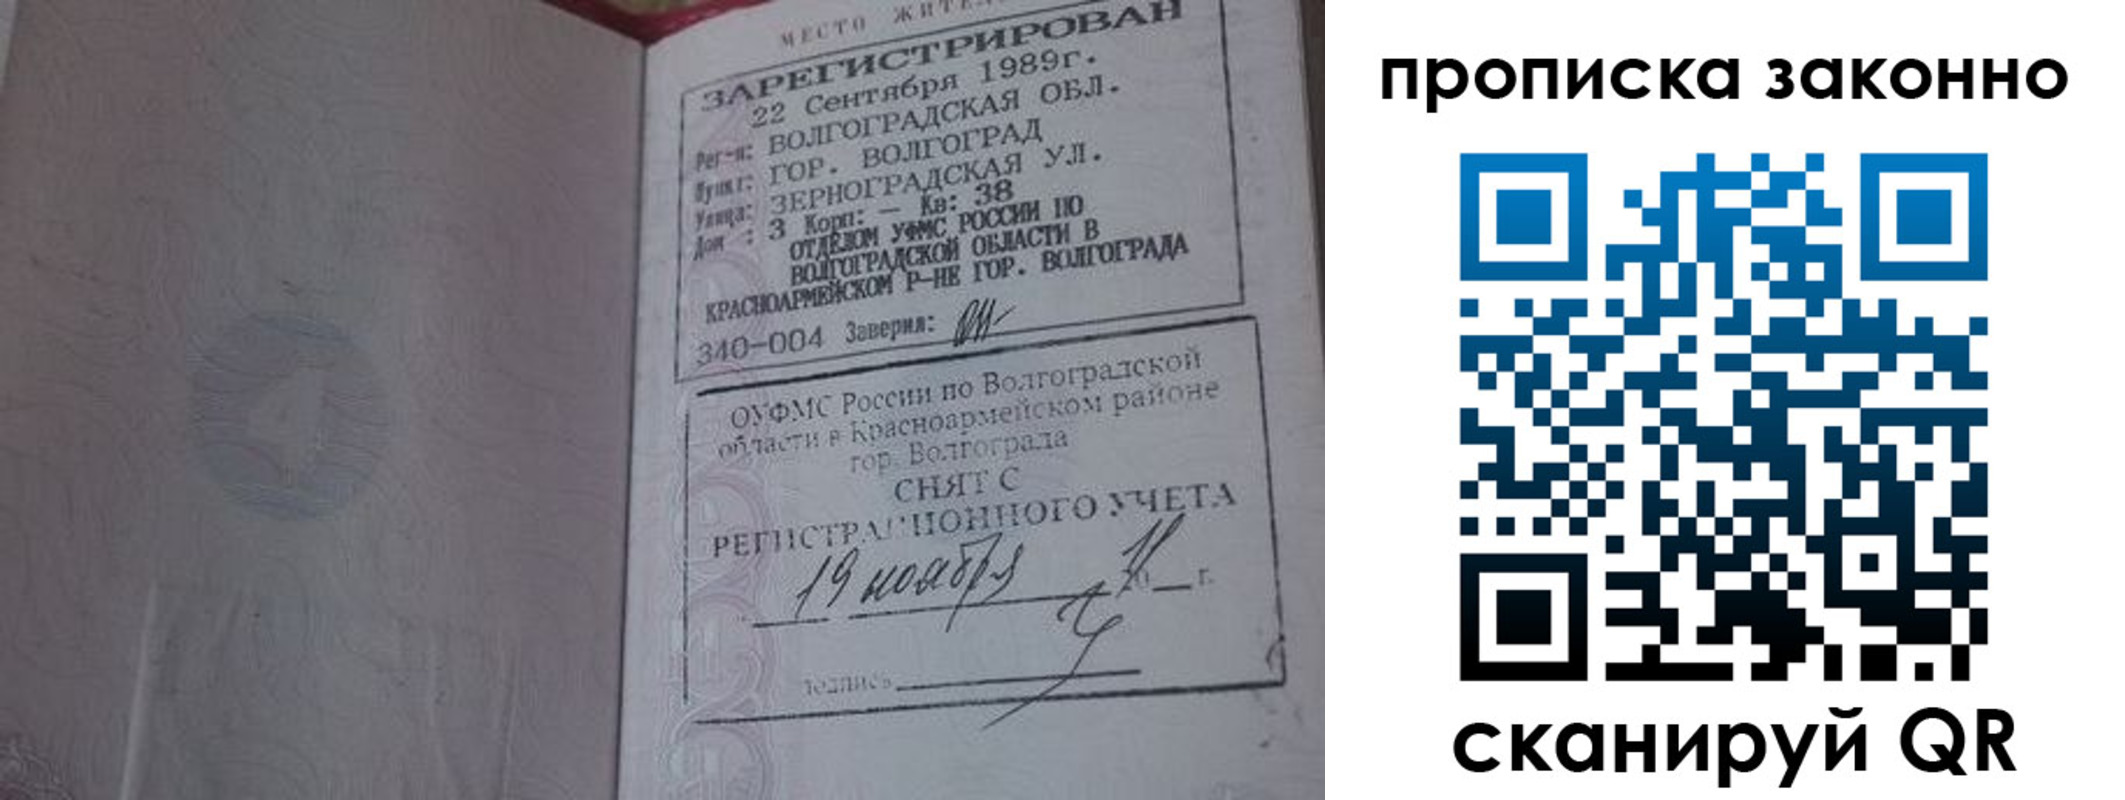 МЕСТО ЖИТЕЛ
ЗАРЕГИСТРИРОВАН
22 Сентября 1989г.
Рег-н: ВОЛГОГРАДСКАЯ ОБЛ.
Пункт: ГОР. ВОЛГОГРАД
Улица: ЗЕРНОГРАДСКАЯ УЛ.
Дом : 3 Корп: — Кв: 38
ОТДЕЛОМ УФМС РОССИИ ПО
ВОЛГОГРАДСКОЙ ОБЛАСТИ В
КРАСНОАРМЕЙСКОМ Р-НЕ ГОР. ВОЛГОГРАДА
340-004 Заверил:
ОУФМС России по Волгоградской
области в Красноармейском районе
гор. Волгограда
СНЯТ С
РЕГИСТРАЦИОННОГО УЧЕТА
19 ноября 20 11 г.
подпись
прописка законно
сканируй QR